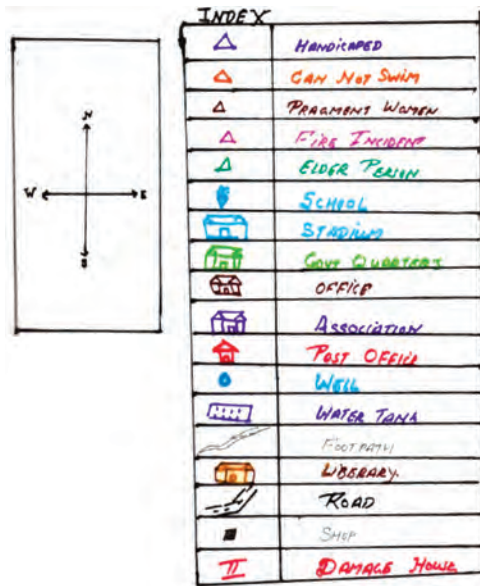 INDEX
N
W E
S
HANDICAPED
CAN NOT SWIM
PRAGMENT WOMEN
FIRE INCIDENT
ELDER PERSON
SCHOOL
STADIUM
GOVT QUARTERS
OFFICE
ASSOCIATION
POST OFFICE
WELL
WATER TANK
FOOTPATH
LIBERARY
ROAD
SHOP
DAMAGE HOUSE